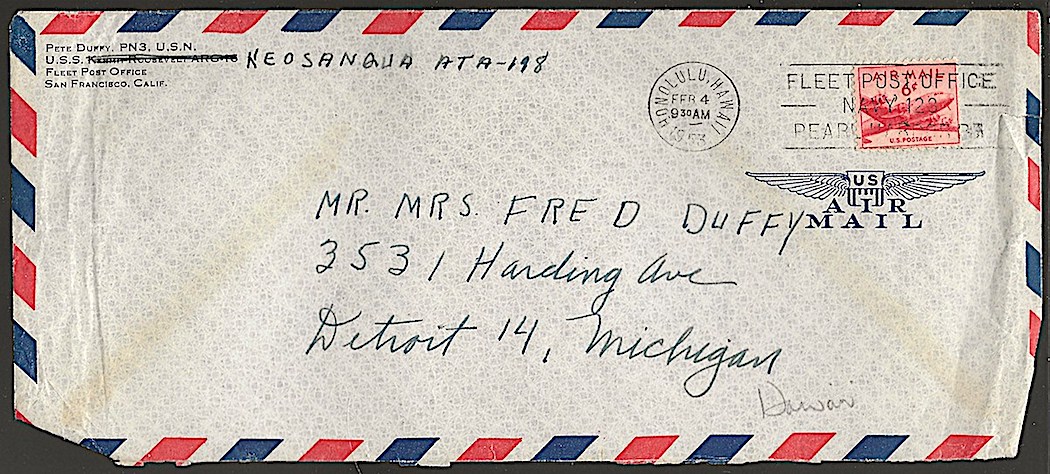 PETE DUFFY, PN3, U.S.N.
U.S.S. KERMIT ROOSEVELT ARG-16 KEOSANQUA ATA-198
FLEET POST OFFICE
SAN FRANCISCO, CALIF.
HONOLULU, HAWAII
FEB 4
9 30 AM
FLEET POST OFFICE
NAVY 128
PEARL
AIR MAIL
6¢
U.S. POSTAGE
US
AIR
MAIL
MR. MRS. FRED DUFFY
3531 Harding Ave
Detroit 14, Michigan